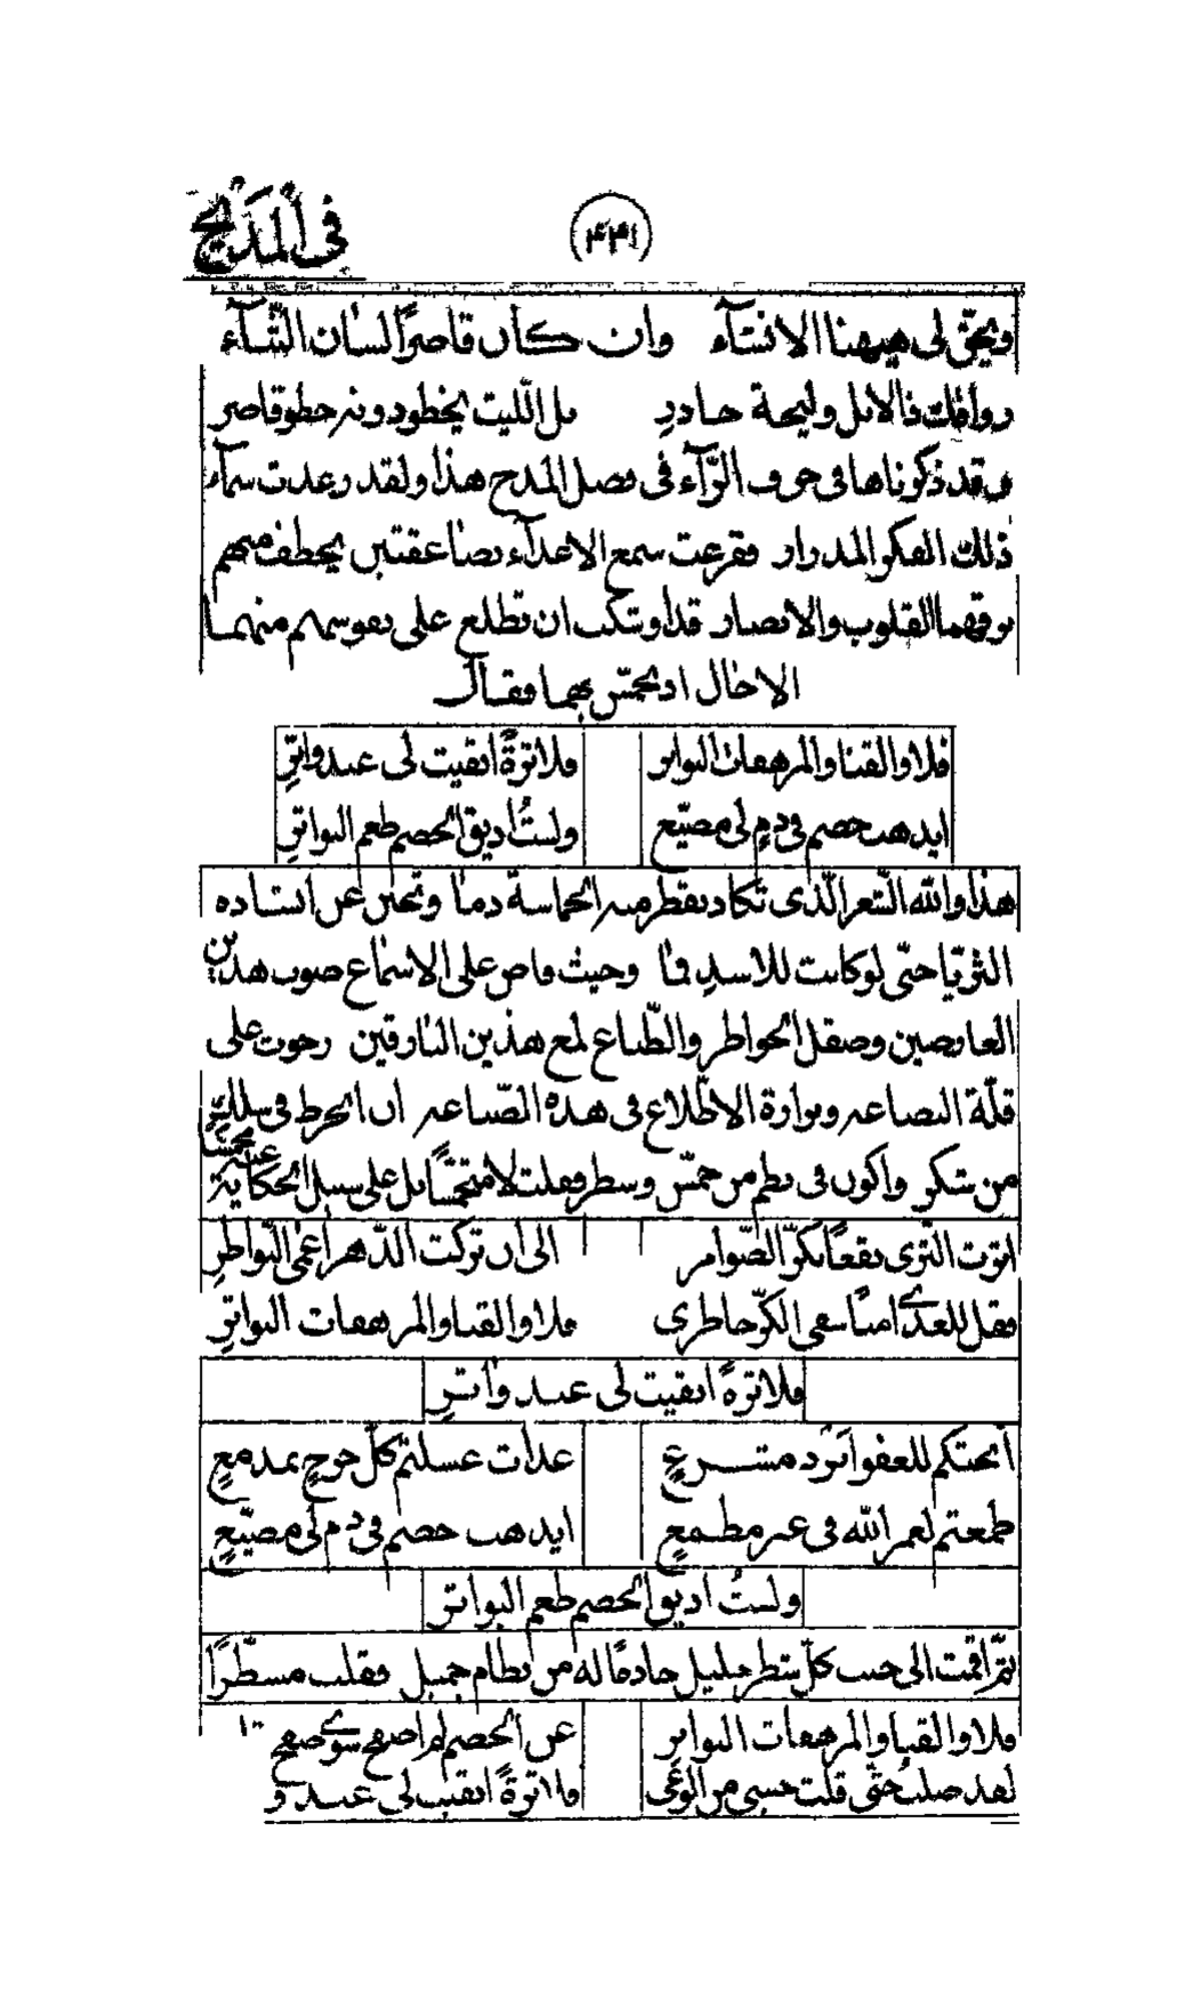 في المديح
ويحق لي هيهنا الانشآء وان كان قاصراً لسان الثنآء
دونه خطو قاصر
وقد ذكرناها في حرف الرّآء في فصل المدح هذا ولقد رعدت سمآء
ذلك الفكر المدرار فقرعت سمع الاعدآء بصاعقتين يخطف منهم
القلوب والابصار قد اوشكت ان تطلع على نفوسهم منهما
الاخال اد يخمّس بهما فقال
فلا والقنا والمرهفات البواتر فلا ترةً ابقيت لي عند واترِ
ايذهب خصم في دمٍ لي مضيّع ولستُ اذيق الخصم طعم البواترِ
هذا والله الشعر الّذي تكاد يقطر منه الحماسة دما وتحنّ عن انشاده
الثريّا حتّى لو كانت للاسدِ فما وحيث فاض على الاسماع صوب هذين
العارضين وصقل الخواطر والطّباع لمع هذين البارقين رجوت على
قلّة البضاعه ونزارة الاطّلاع في هذه الصّناعه ان انخرط في سلك
من شكر واكون في نظم من خمّس وسطر فقلت لا متحمّساً بل على سبيل الحكاية
اثرت الثرى نقعاً بكرّ الضّوامر الى ان تركت الدّهر اعمى النّواظرِ
فقل للعدى امناً سعى الكرّ خاطري فلا والقنا والمرهفات البواترِ
فلا ترةً ابقيت لي عند واترِ
أبحتكم للعفو ابرد مشرعٍ غداة غسلتم كلّ جرحٍ بمدمعٍ
طمعتم لعمر الله في غير مطمعٍ ايذهب خصم في دم لي مضيّعٍ
ولستُ اذيق الخصم طعم البواتر
ثمّ اقمت الى جنب كلّ شطر جليل خادماً له من نظام جميل فقلت مسطّراً
فلا والقنا والمرهفات البواتر عن الخصم لم اصفح سوى صفح
لقد صلتُ حتّى قلت حسبي من الوغى فلا ترةً ابقيت لي عند و